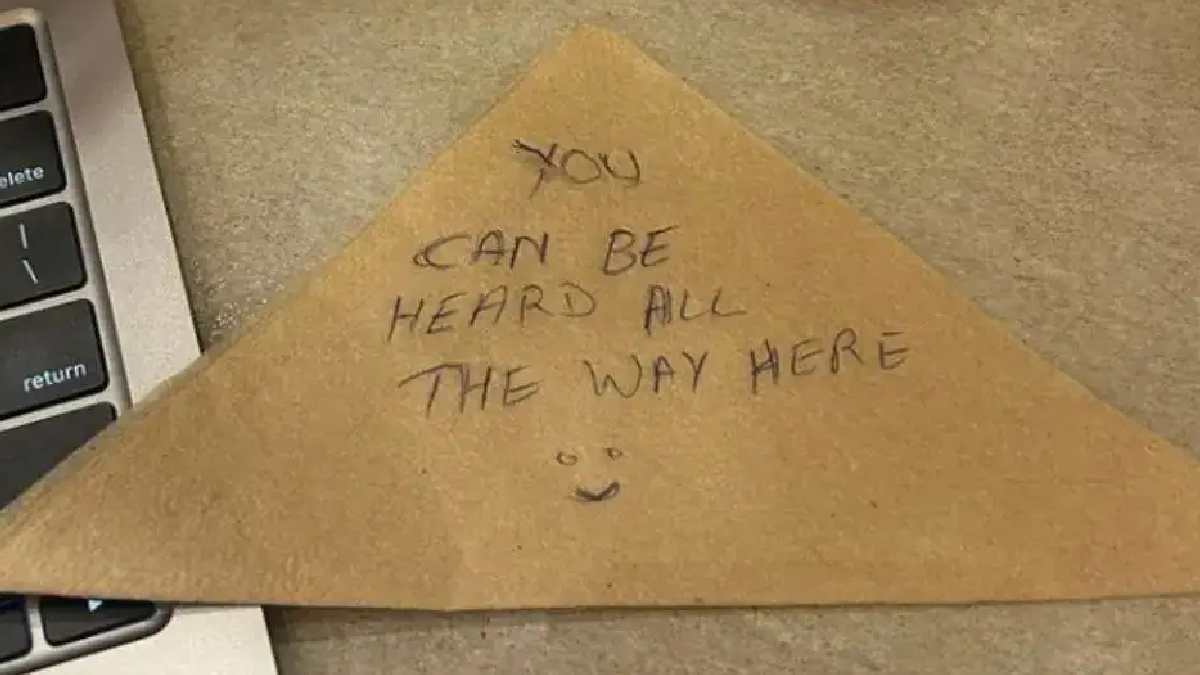 elete
|
\
return
YOU
CAN BE
HEARD ALL
THE WAY HERE